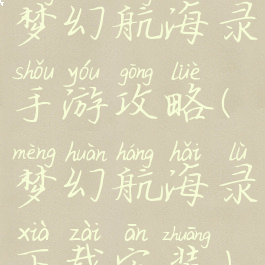 梦幻航海录
shǒu yóu gōng lüè
手游攻略(
mèng huàn háng hǎi lù
梦幻航海录
xià zài ān zhuāng
下载安装)